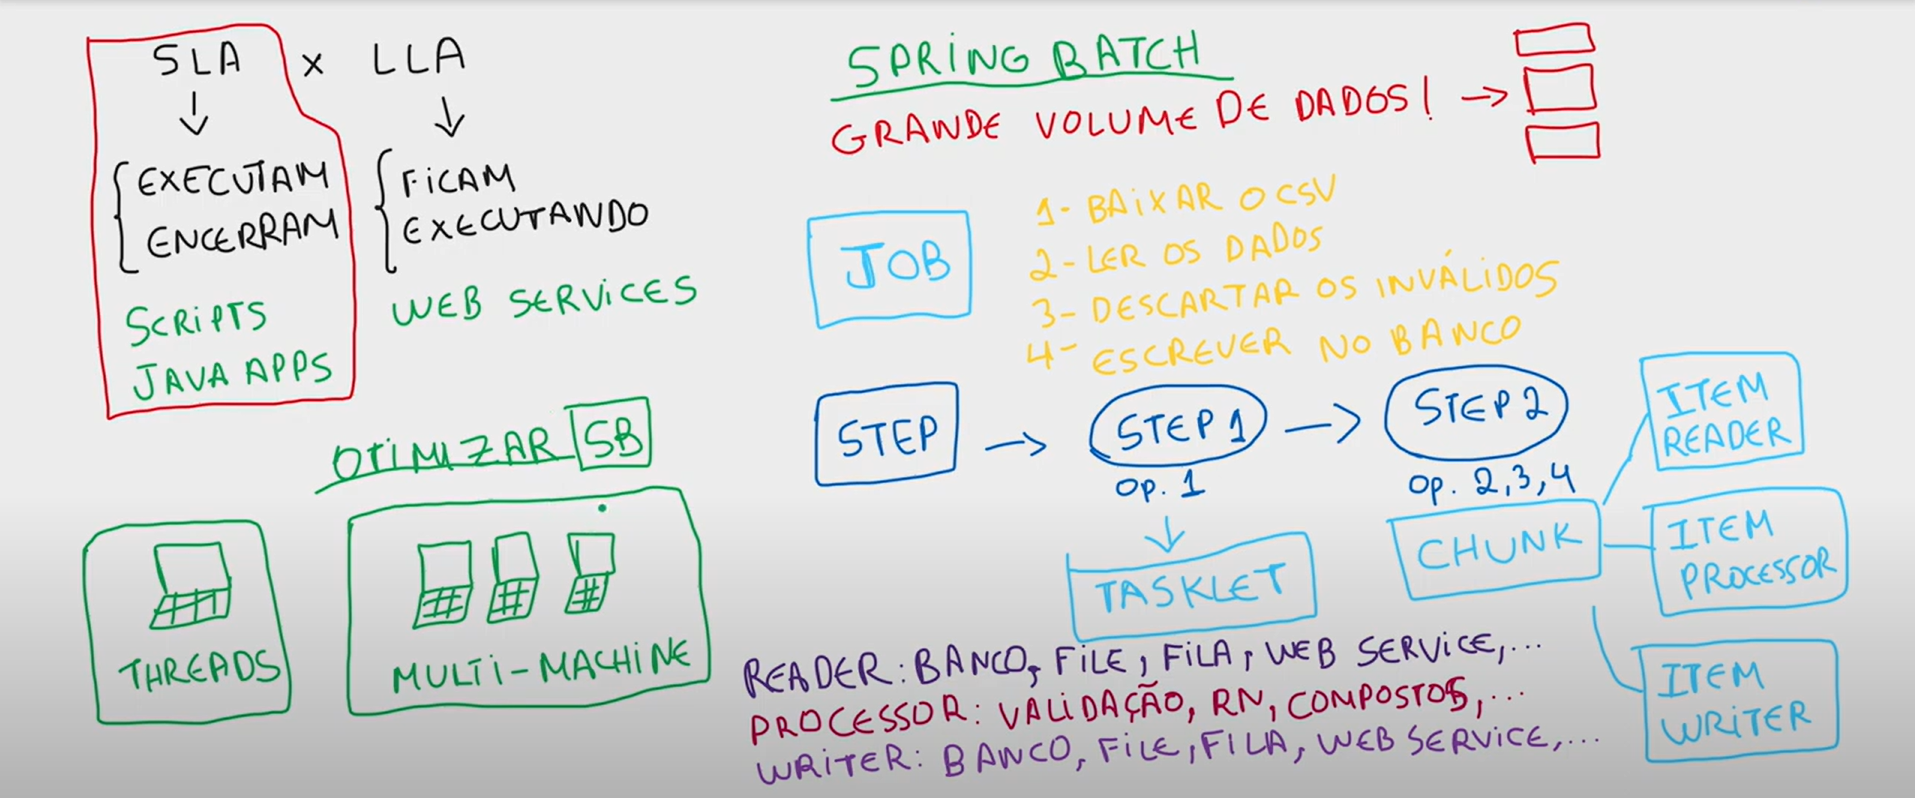 SLA x LLA
EXECUTAM
ENCERRAM
FICAM
EXECUTANDO
SCRIPTS
JAVA APPS
WEB SERVICES
OTIMIZAR SB
THREADS
MULTI-MACHINE
SPRING BATCH
GRANDE VOLUME DE DADOS!
JOB
1- BAIXAR O CSV
2- LER OS DADOS
3- DESCARTAR OS INVÁLIDOS
4- ESCREVER NO BANCO
STEP
STEP 1
Op. 1
STEP 2
Op. 2,3,4
TASKLET
CHUNK
ITEM
READER
ITEM
PROCESSOR
ITEM
WRITER
READER: BANCO, FILE, FILA, WEB SERVICE,...
PROCESSOR: VALIDAÇÃO, RN, COMPOSTOS,...
WRITER: BANCO, FILE, FILA, WEB SERVICE,...